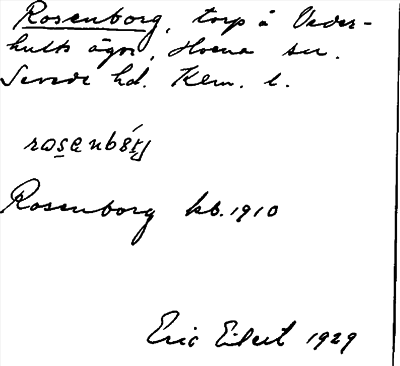 Rosenborg, torp å Veder-
hults ägor, Horna sn.
Sevede hd. KLm. l.
Rosenborg kb. 1910
Eric Eilert 1929